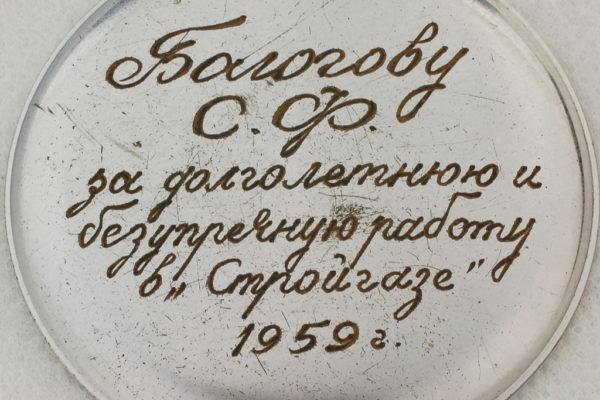 Балогову
С. Ф.
за долголетнюю и
безупречную работу
в „Стройгазе"
1959 г.